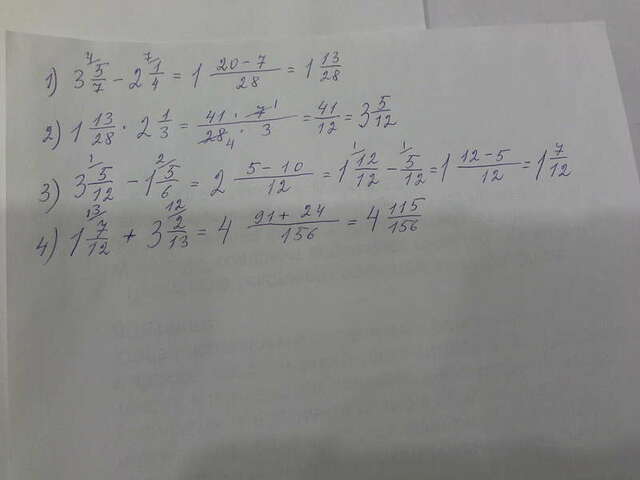 1) 3 5/7 - 2 1/4 = 1 (20-7)/28 = 1 13/28
2) 1 13/28 · 2 1/3 = (41 · 7)/(28 · 3) = 41/12 = 3 5/12
3) 3 5/12 - 1 5/6 = 2 (5-10)/12 = 1 12/12 - 5/12 = 1 (12-5)/12 = 1 7/12
4) 1 7/12 + 3 2/13 = 4 (91+24)/156 = 4 115/156